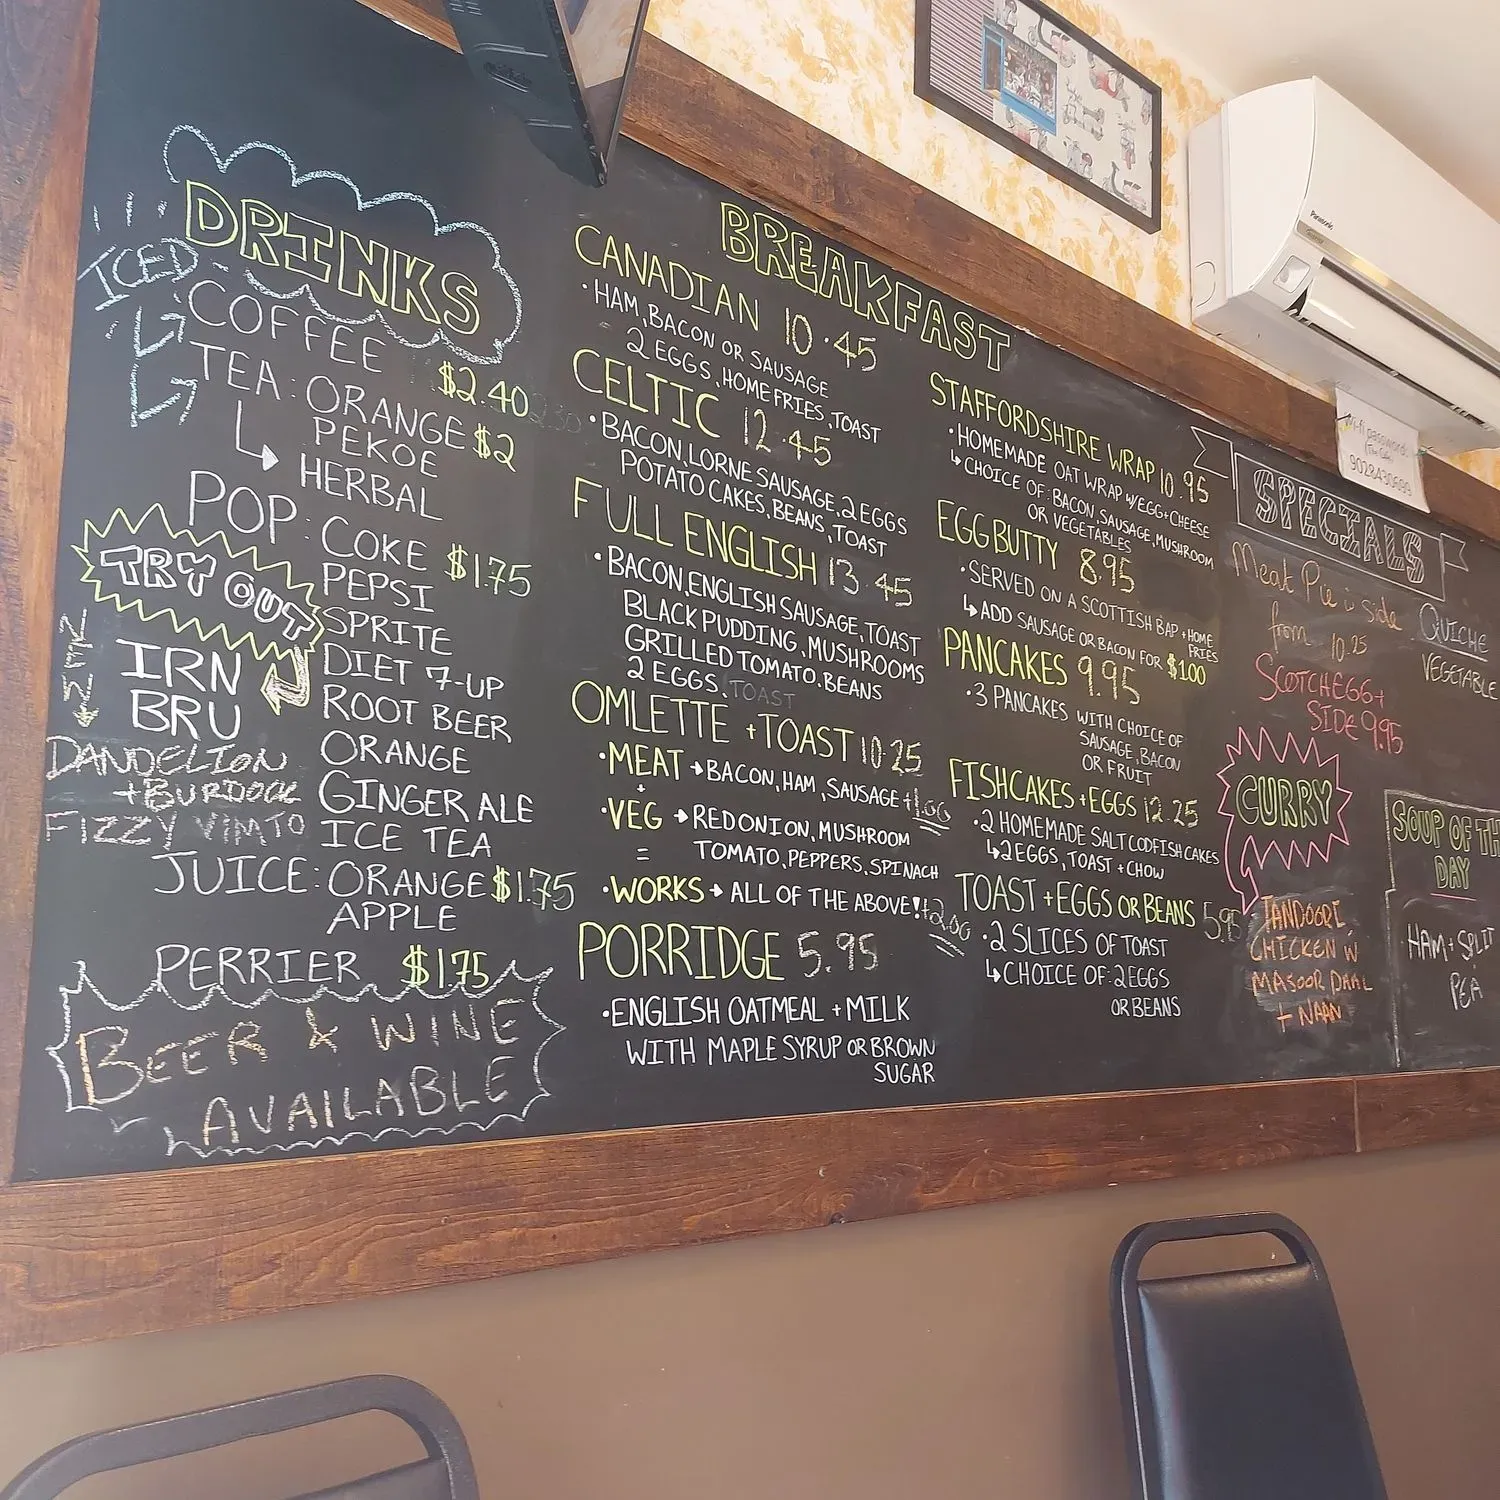 DRINKS
ICED
COFFEE $2.40
TEA: ORANGE
PEKOE $2
HERBAL
POP: COKE $1.75
PEPSI
SPRITE
DIET 7-UP
ROOT BEER
ORANGE
GINGER ALE
ICE TEA
TRY OUT
IRN
BRU
DANDELION
+ BURDOCK
FIZZY VIMTO
JUICE: ORANGE $1.75
APPLE
PERRIER $1.75
BEER & WINE
AVAILABLE
BREAKFAST
CANADIAN 10.45
• HAM, BACON OR SAUSAGE
2 EGGS, HOMEFRIES, TOAST
CELTIC 12.45
• BACON, LORNE SAUSAGE, 2 EGGS
POTATO CAKES, BEANS, TOAST
FULL ENGLISH 13.45
• BACON, ENGLISH SAUSAGE, TOAST
BLACK PUDDING, MUSHROOMS
GRILLED TOMATO, BEANS
2 EGGS, TOAST
OMLETTE + TOAST 10.25
• MEAT → BACON, HAM, SAUSAGE +1.00
+
• VEG → RED ONION, MUSHROOM
= TOMATO, PEPPERS, SPINACH
• WORKS → ALL OF THE ABOVE! +2.00
PORRIDGE 5.95
• ENGLISH OATMEAL + MILK
WITH MAPLE SYRUP OR BROWN
SUGAR
STAFFORDSHIRE WRAP 10.95
• HOMEMADE OAT WRAP W/EGG+CHEESE
↳ CHOICE OF: BACON, SAUSAGE, MUSHROOM
OR VEGETABLES
EGG BUTTY 8.95
• SERVED ON A SCOTTISH BAP + HOME
FRIES
↳ ADD SAUSAGE OR BACON FOR $1.00
PANCAKES 9.95
• 3 PANCAKES WITH CHOICE OF
SAUSAGE, BACON
OR FRUIT
FISHCAKES + EGGS 12.25
• 2 HOMEMADE SALT CODFISH CAKES
↳ 2 EGGS, TOAST + CHOW
TOAST + EGGS OR BEANS 5.95
• 2 SLICES OF TOAST
↳ CHOICE OF: 2 EGGS
OR BEANS
SPECIALS
Meat Pie & side
from 10.25
SCOTCH EGG +
SIDE 9.95
QUICHE
VEGETABLE
CURRY
TANDOORI
CHICKEN W
MASOOR DAAL
+ NAAN
SOUP OF TH
DAY
HAM + SPLIT
PEA
Panasonic
Wi-fi password:
9028430699